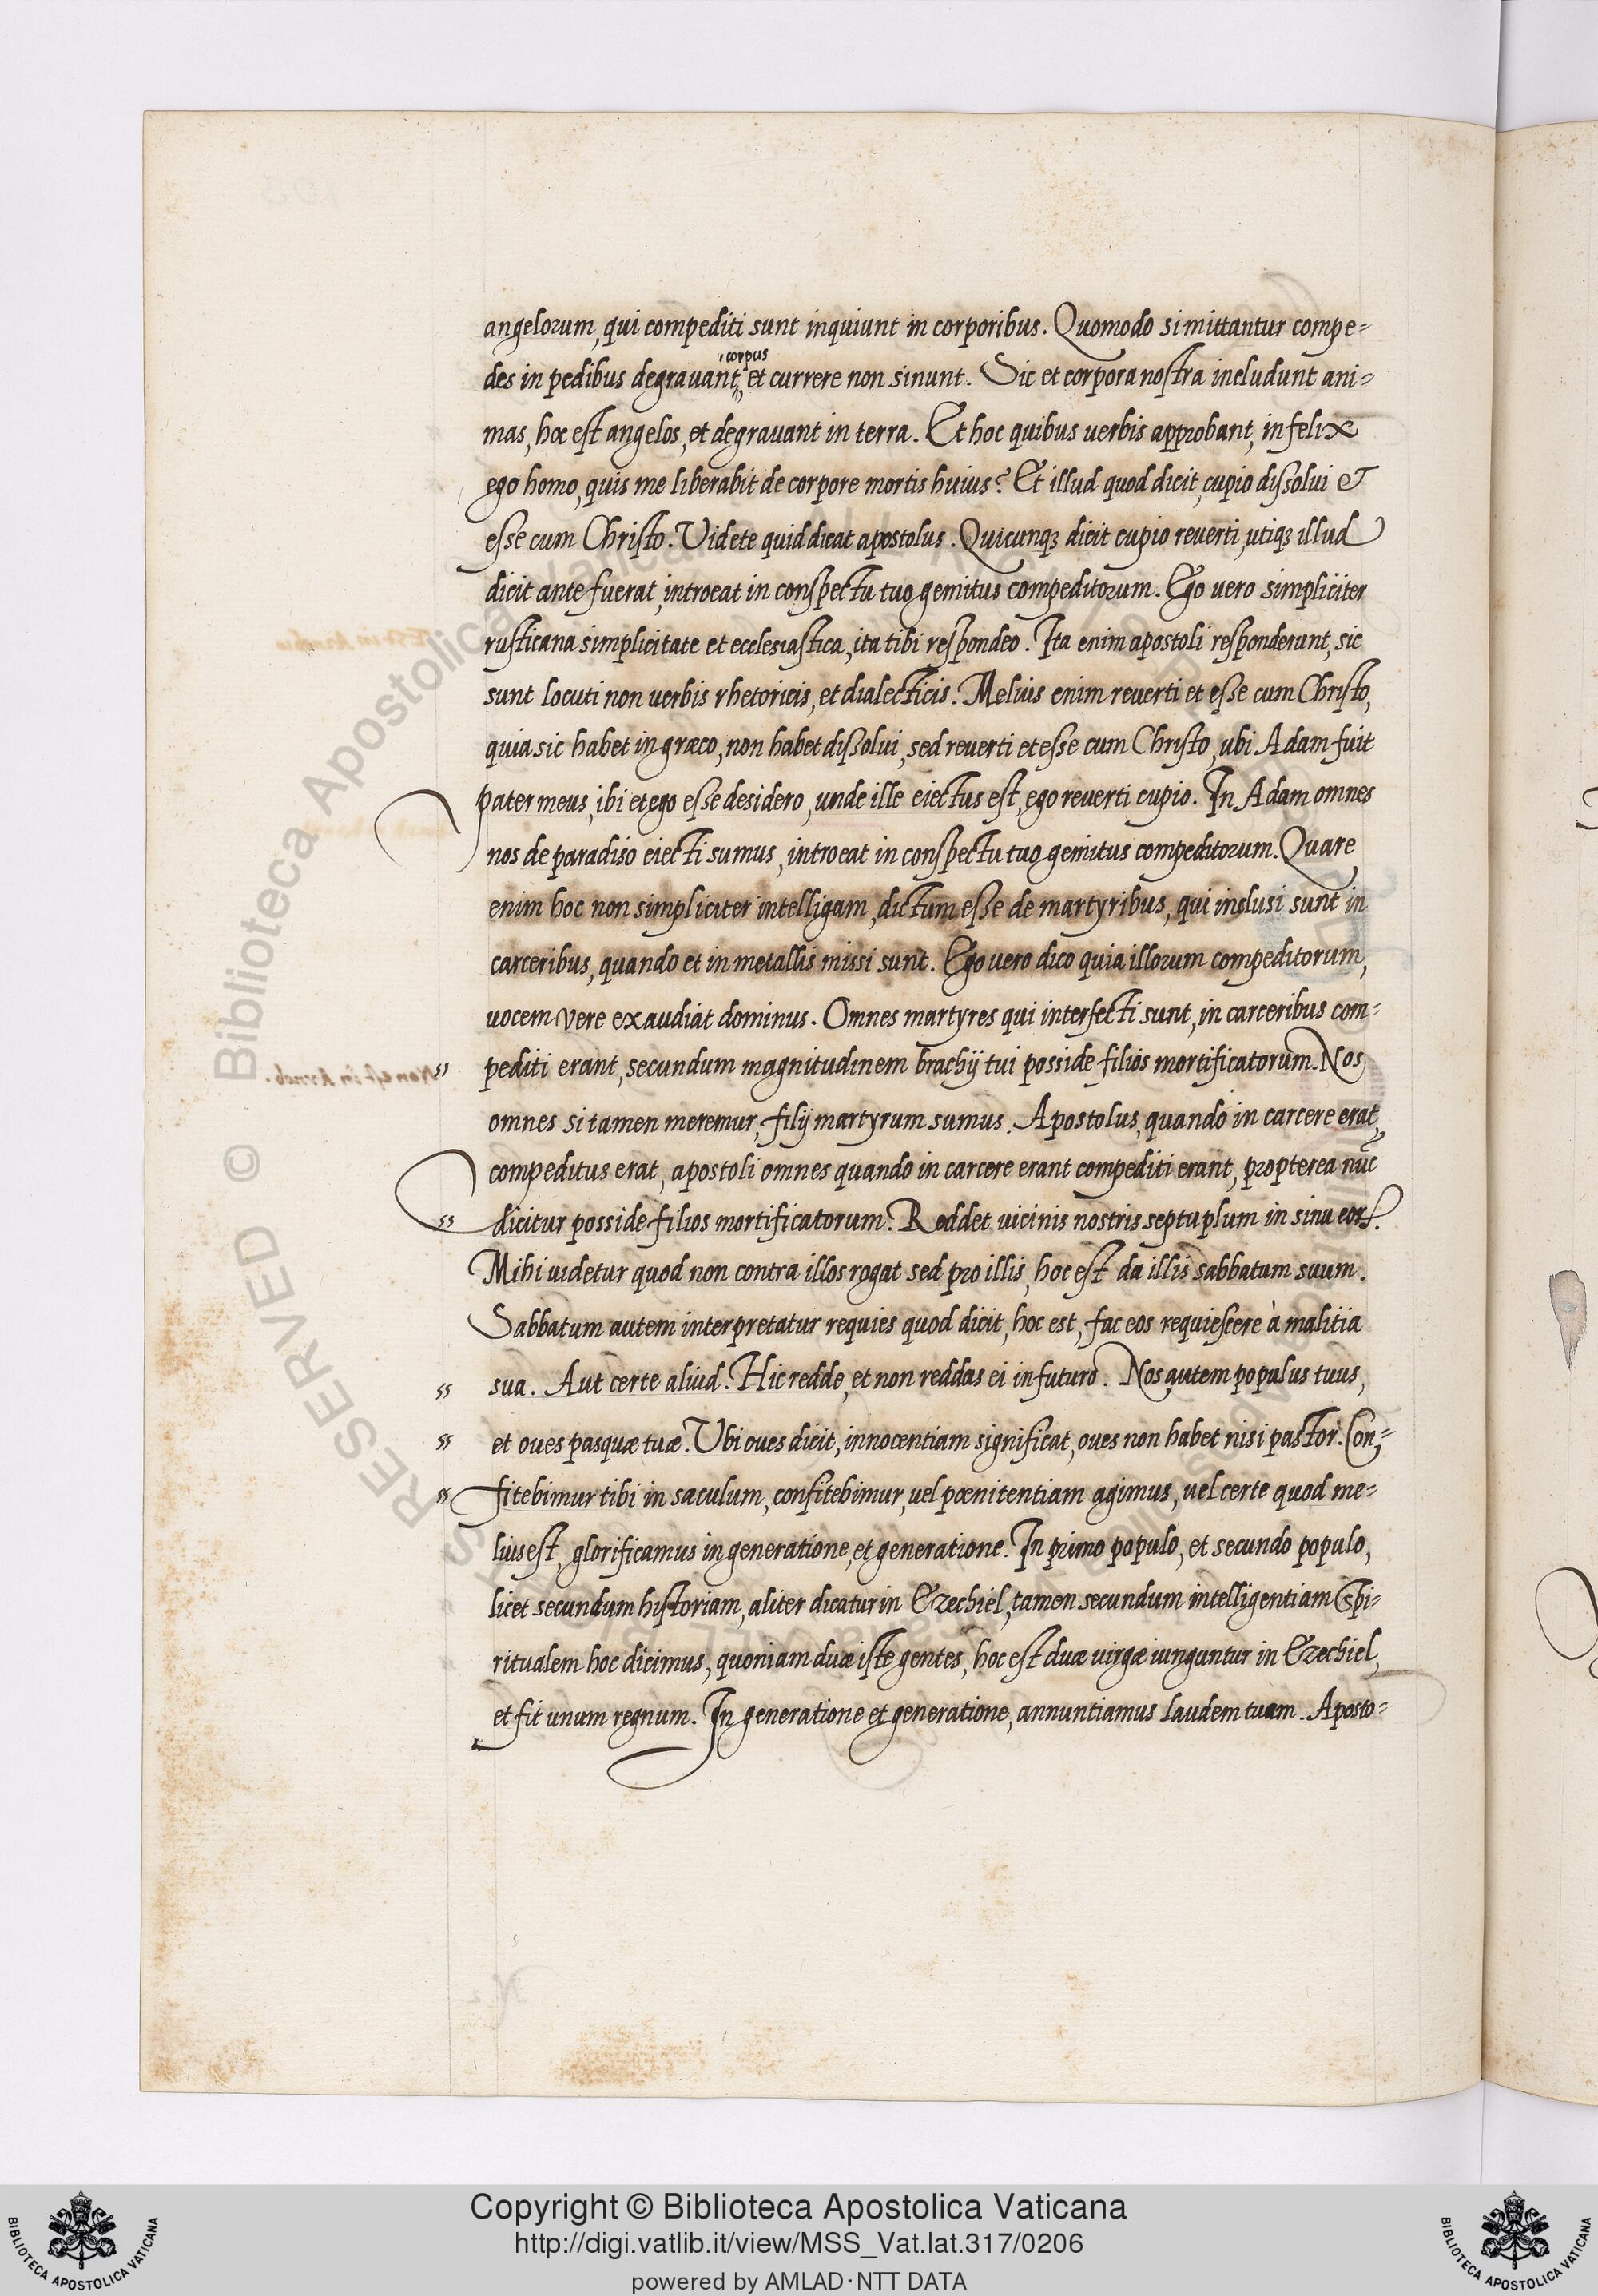 angelorum, qui compediti sunt inquiunt in corporibus. Quomodo si mittantur compe=
corpus
des in pedibus degravant, et currere non sinunt. Sic et corpora nostra includunt ani=
mas, hoc est angelos, et degravant in terra. Et hoc quibus verbis approbant, infelix
ego homo, quis me liberabit de corpore mortis huius? Et illud quod dicit, cupio dissolui &
esse cum Christo. Videte quid dicat apostolus. Quicunqꝫ dicit cupio reverti, utiqꝫ illud
dicit ante fuerat, introeat in conspectu tuo gemitus compeditorum. Ego vero simpliciter
rusticana simplicitate et ecclesiastica, ita tibi respondeo. Ita enim apostoli responderunt, sic
sunt locuti non verbis rhetoricis, et dialecticis. Melius enim reverti et esse cum Christo,
quia sic habet in græco, non habet dissolui, sed reverti et esse cum Christo, ubi Adam fuit
pater meus, ibi et ego esse desidero, unde ille eiectus est, ego reverti cupio. In Adam omnes
nos de paradiso eiecti sumus, introeat in conspectu tuo gemitus compeditorum. Quare
enim hoc non simpliciter intelligam, dictum esse de martyribus, qui inclusi sunt in
carceribus, quando et in metallis missi sunt. Ego vero dico quia illorum compeditorum,
vocem vere exaudiat dominus. Omnes martyres qui interfecti sunt, in carceribus com=
pediti erant, secundum magnitudinem brachij tui posside filios mortificatorum. Nos
omnes si tamen meremur, filij martyrum sumus. Apostolus, quando in carcere erat,
compeditus erat, apostoli omnes quando in carcere erant compediti erant, propterea nūc
dicitur posside filios mortificatorum. Reddet vicinis nostris septuplum in sinu eorꝝ.
Mihi videtur quod non contra illos rogat sed pro illis, hoc est da illis sabbatum suum.
Sabbatum autem interpretatur requies quod dicit, hoc est, fac eos requiescere à malitia
sua. Aut certe aliud. Hic redde, et non reddas ei in futuro. Nos autem populus tuus,
et oues pasquæ tuæ. Ubi oues dicit, innocentiam significat, oues non habet nisi pastor. Con=
fitebimur tibi in sæculum, confitebimur, vel pœnitentiam agimus, vel certe quod me=
lius est, glorificamus in generatione, et generatione. In primo populo, et secundo populo,
licet secundum historiam, aliter dicatur in Ezechiel, tamen secundum intelligentiam Spi=
ritualem hoc dicimus, quoniam duæ iste gentes, hoc est duæ virgæ iunguntur in Ezechiel,
et fit unum regnum. In generatione et generatione, annuntiamus laudem tuam. Aposto=
Copyright © Biblioteca Apostolica Vaticana
http://digi.vatlib.it/view/MSS_Vat.lat.317/0206
powered by AMLAD·NTT DATA
BIBLIOTECA APOSTOLICA VATICANA
BIBLIOTECA APOSTOLICA VATICANA